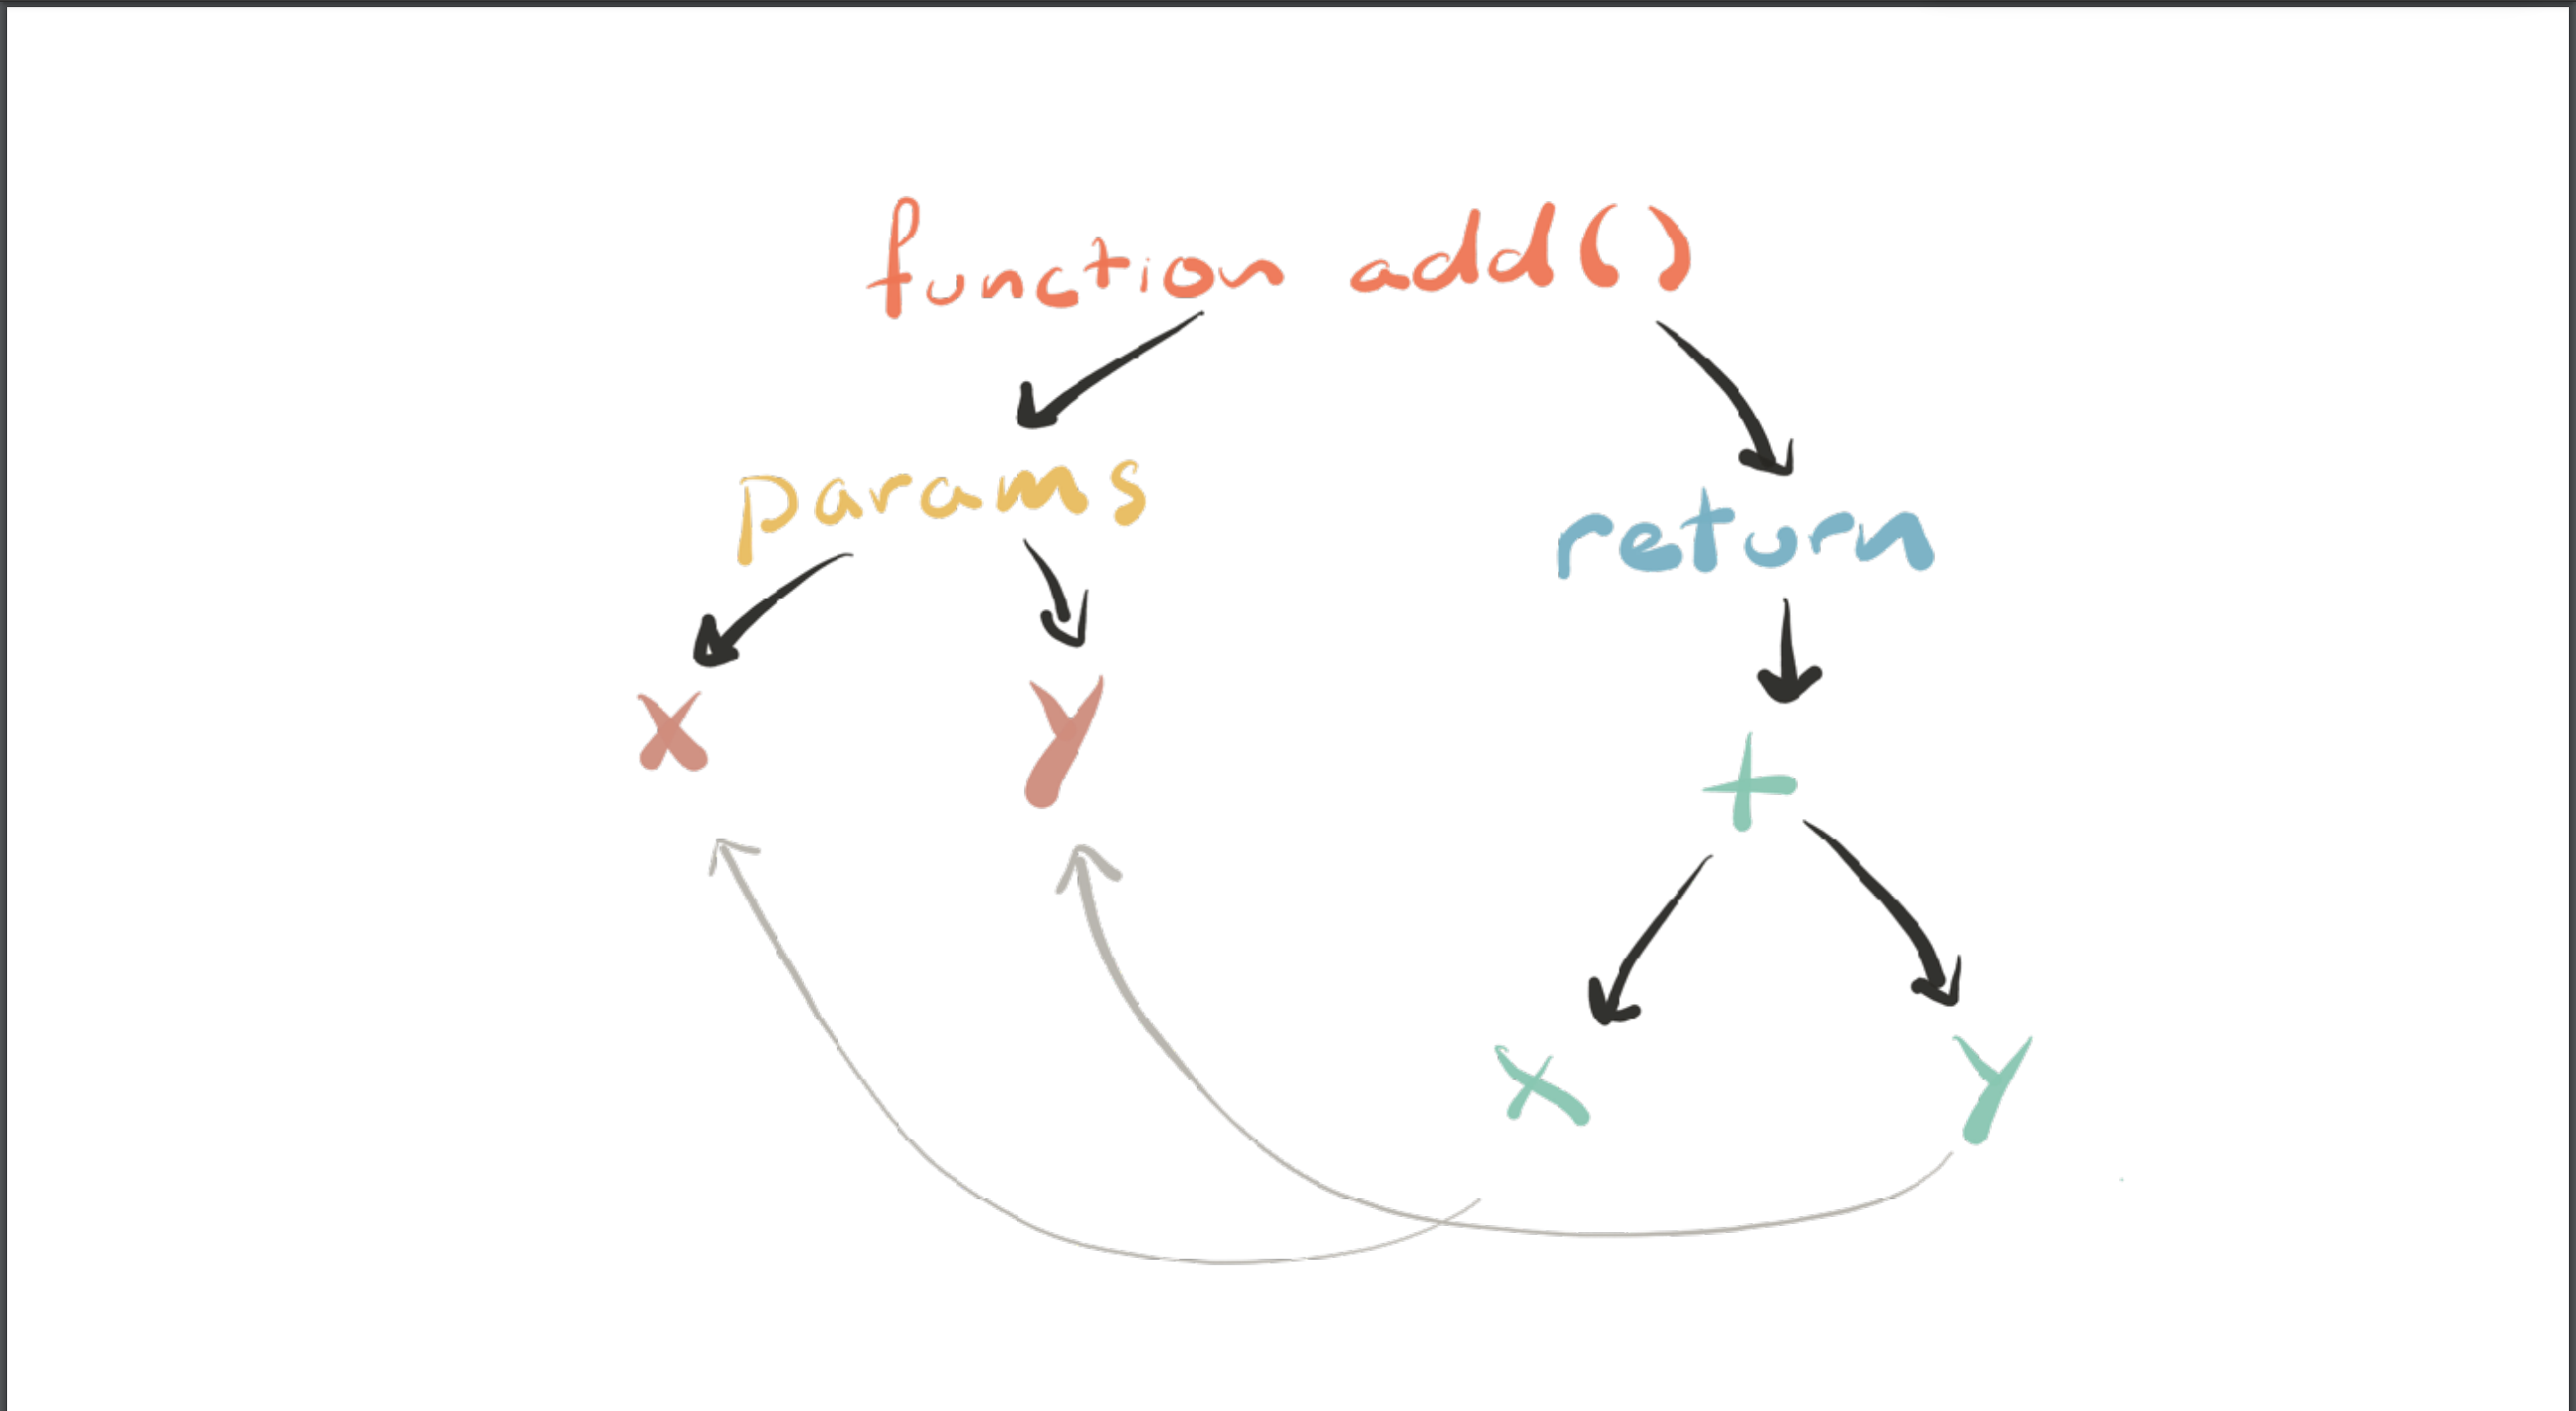 function add()
params
return
x y
+
x y